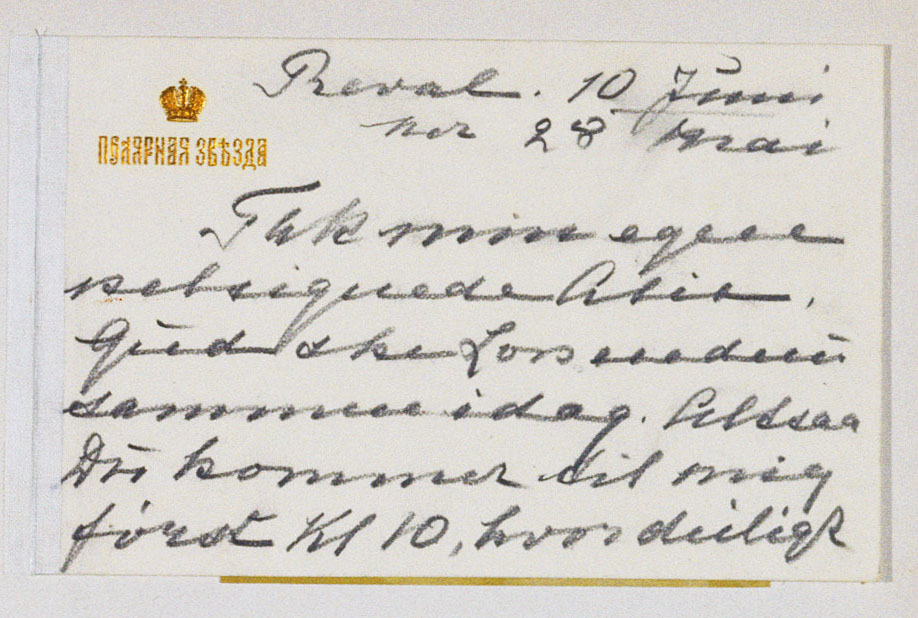 Reval. 10 Juni
28 Mai
ПОЛЯРНАЯ ЗВѢЗДА
Tak min egen
velsignede Alix.
Gud ske Lov
sammen idag. Altsaa
Du kommer til mig
först Kl 10, hvor deiligt